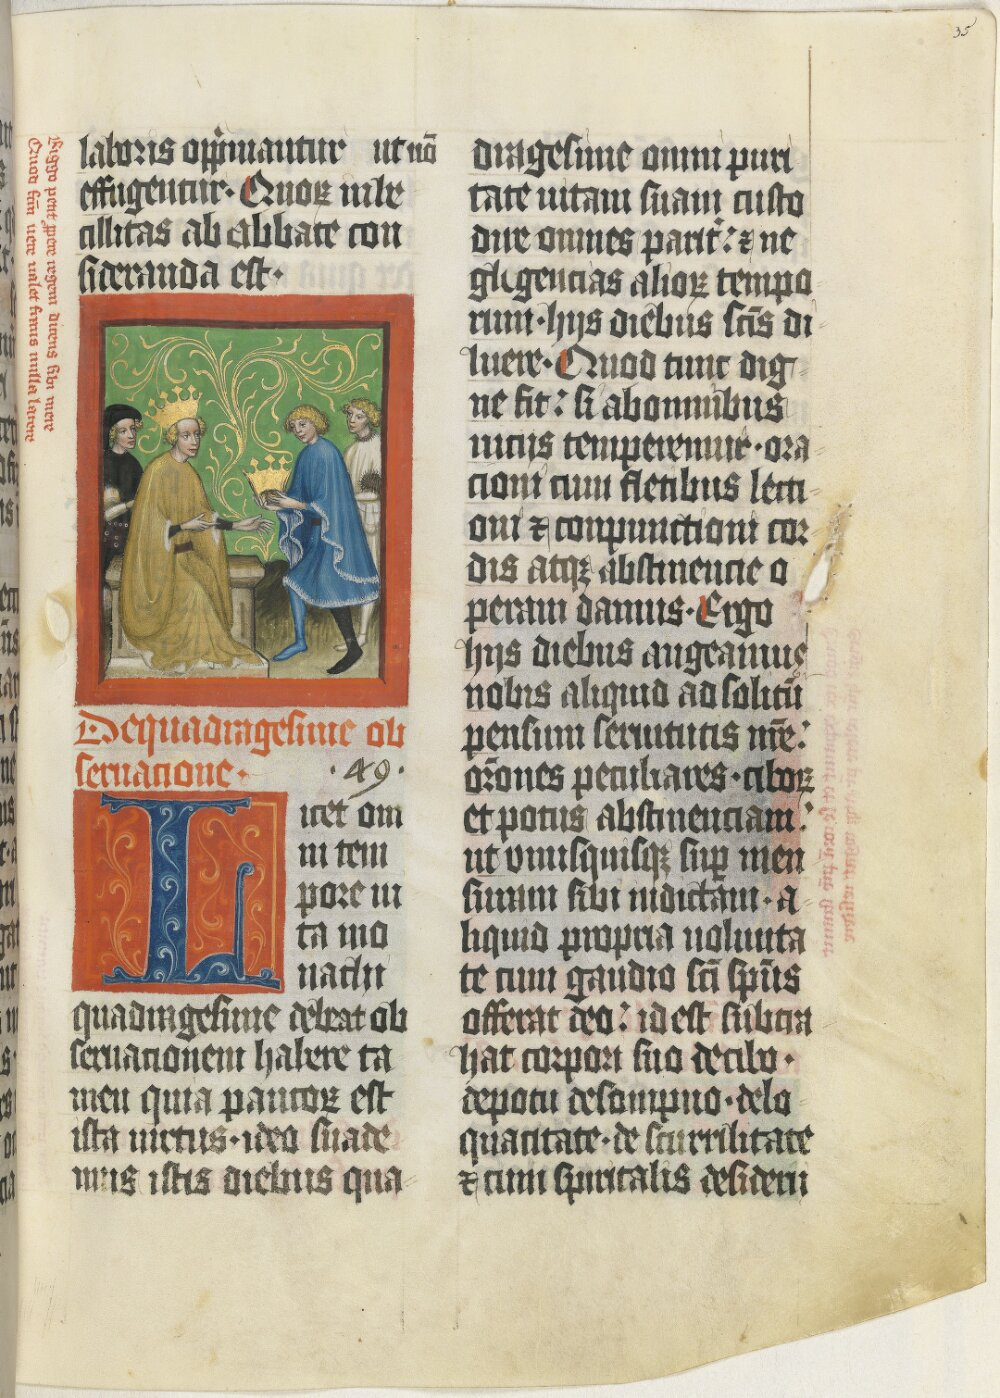 35
Riggo petit pere regem dicens sibi mere
Quod sim vere valet simus nulla latere
laboris opprimantur ut nō
effugentur. Quoꝝ inbe
cillitas ab abbate con
sideranda est.
De quadragesime ob
seruacione. .49.
Licet om
ni tem
pore ui
ta mo
nachi
quadragesime debeat ob
seruacionem habere ta
men quia paucoꝝ est
ista uirtus. ideo suade
mus istis diebus qua
dragesime omni puri
tate uitam suam custo
dire omnes parit᷑: ⁊ ne
gligencias alioꝝ tempo
rum. hijs diebus sc̄is di
luere. Quod tunc dig
ne fit: si ab omnibus
uicijs temperemur. ora
cioni cum fletibus lecti
oni ⁊ conpunctioni cor
dis atqꝫ abstinencie o
peram damus. Ergo
hijs diebus augeamus
nobis aliquid ad solitū
pensum seruitutis nr̄e:
or̄ones peculiares. ciboꝝ
et potus abstinenciam:
ut vnusquisqꝫ sup men
suram sibi indictam. a
liquid propria uolunta
te cum gaudio sc̄i sp̄us
offerat deo: id est subtra
hat corpori suo de cibo.
de potu de sompno. de lo
quacitate. de scurrilitate
⁊ cum spiritalis desiderij